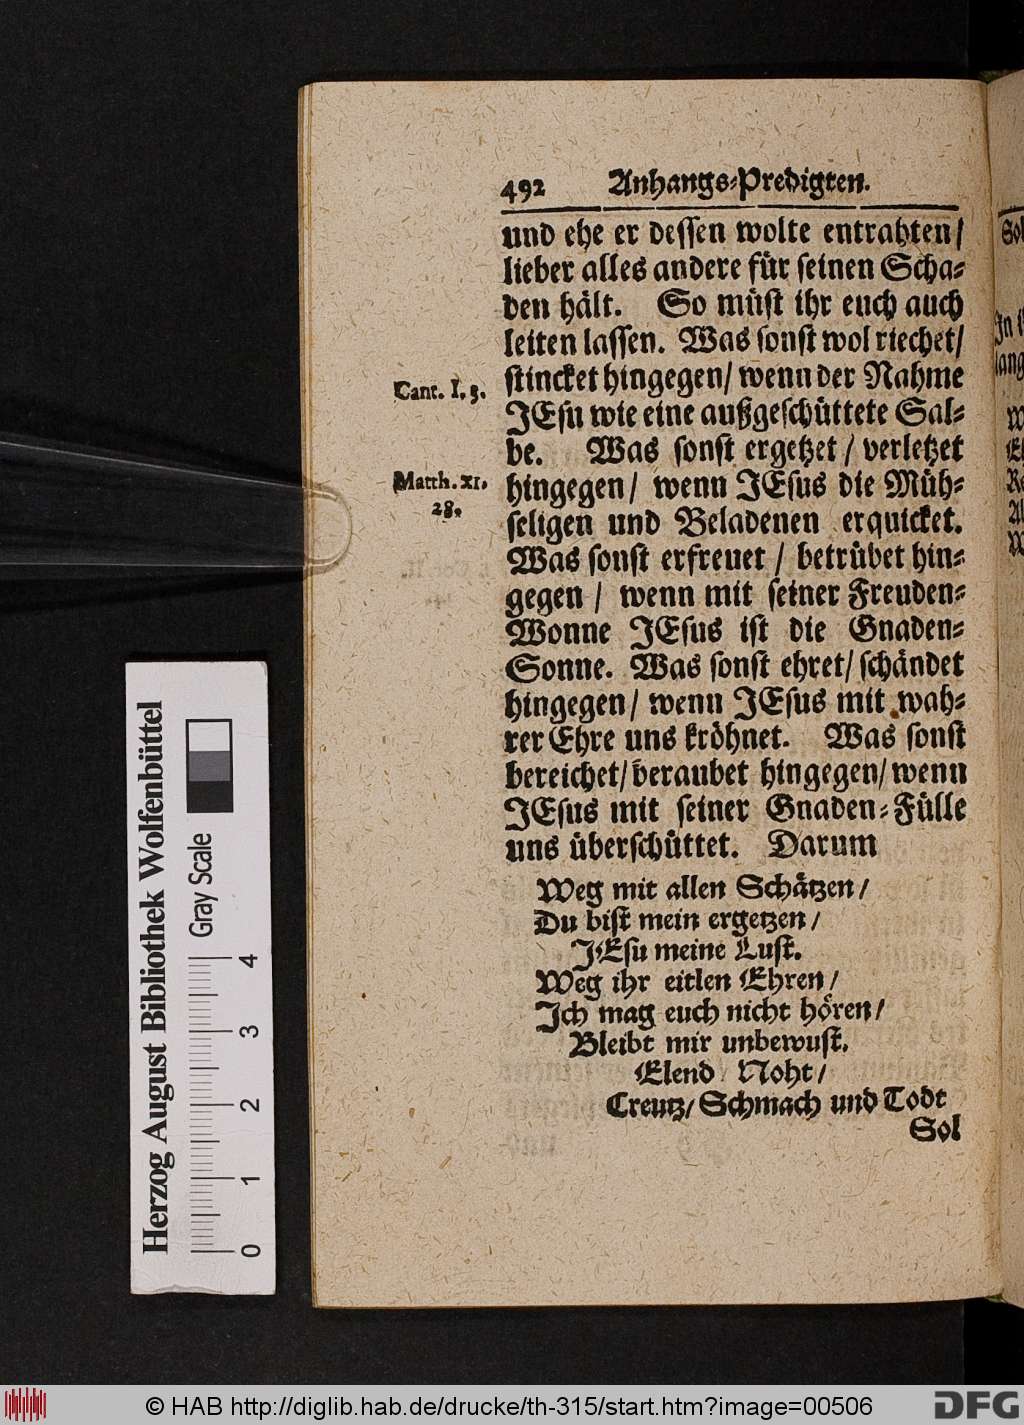 492 Anhangs-Predigten.
und ehe er dessen wolte entrahten/
lieber alles andere für seinen Scha-
den hält. So müst ihr euch auch
leiten lassen. Was sonst wol riechet/
Cant. I, 3.
stincket hingegen/ wenn der Nahme
JEsu wie eine außgeschüttete Sal-
be. Was sonst ergetzet / verletzet
Matth. XI.
28.
hingegen/ wenn JEsus die Müh-
seligen und Beladenen erquicket.
Was sonst erfreuet / betrübet hin-
gegen / wenn mit seiner Freuden-
Wonne JEsus ist die Gnaden-
Sonne. Was sonst ehret/ schändet
hingegen/ wenn JEsus mit wah-
rer Ehre uns kröhnet. Was sonst
bereichet/ beraubet hingegen/ wenn
JEsus mit seiner Gnaden-Fülle
uns überschüttet. Darum
Weg mit allen Schätzen/
Du bist mein ergetzen/
JEsu meine Lust.
Weg ihr eitlen Ehren/
Ich mag euch nicht hören/
Bleibt mir unbewust.
Elend Noht/
Creutz/ Schmach und Todt
Sol
Herzog August Bibliothek Wolfenbüttel
Gray Scale
0 1 2 3 4
© HAB http://diglib.hab.de/drucke/th-315/start.htm?image=00506
DFG